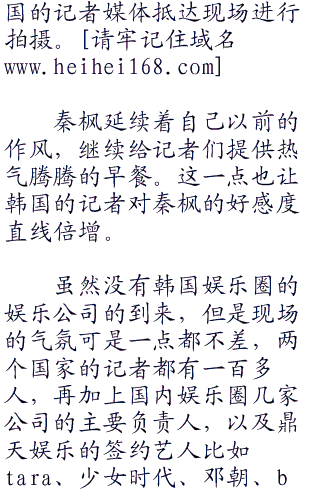 国的记者媒体抵达现场进行
拍摄。[请牢记住域名
www.heihei168.com]
秦枫延续着自己以前的
作风，继续给记者们提供热
气腾腾的早餐。这一点也让
韩国的记者对秦枫的好感度
直线倍增。
虽然没有韩国娱乐圈的
娱乐公司的到来，但是现场
的气氛可是一点都不差，两
个国家的记者都有一百多
人，再加上国内娱乐圈几家
公司的主要负责人，以及鼎
天娱乐的签约艺人比如
tara、少女时代、邓朝、b